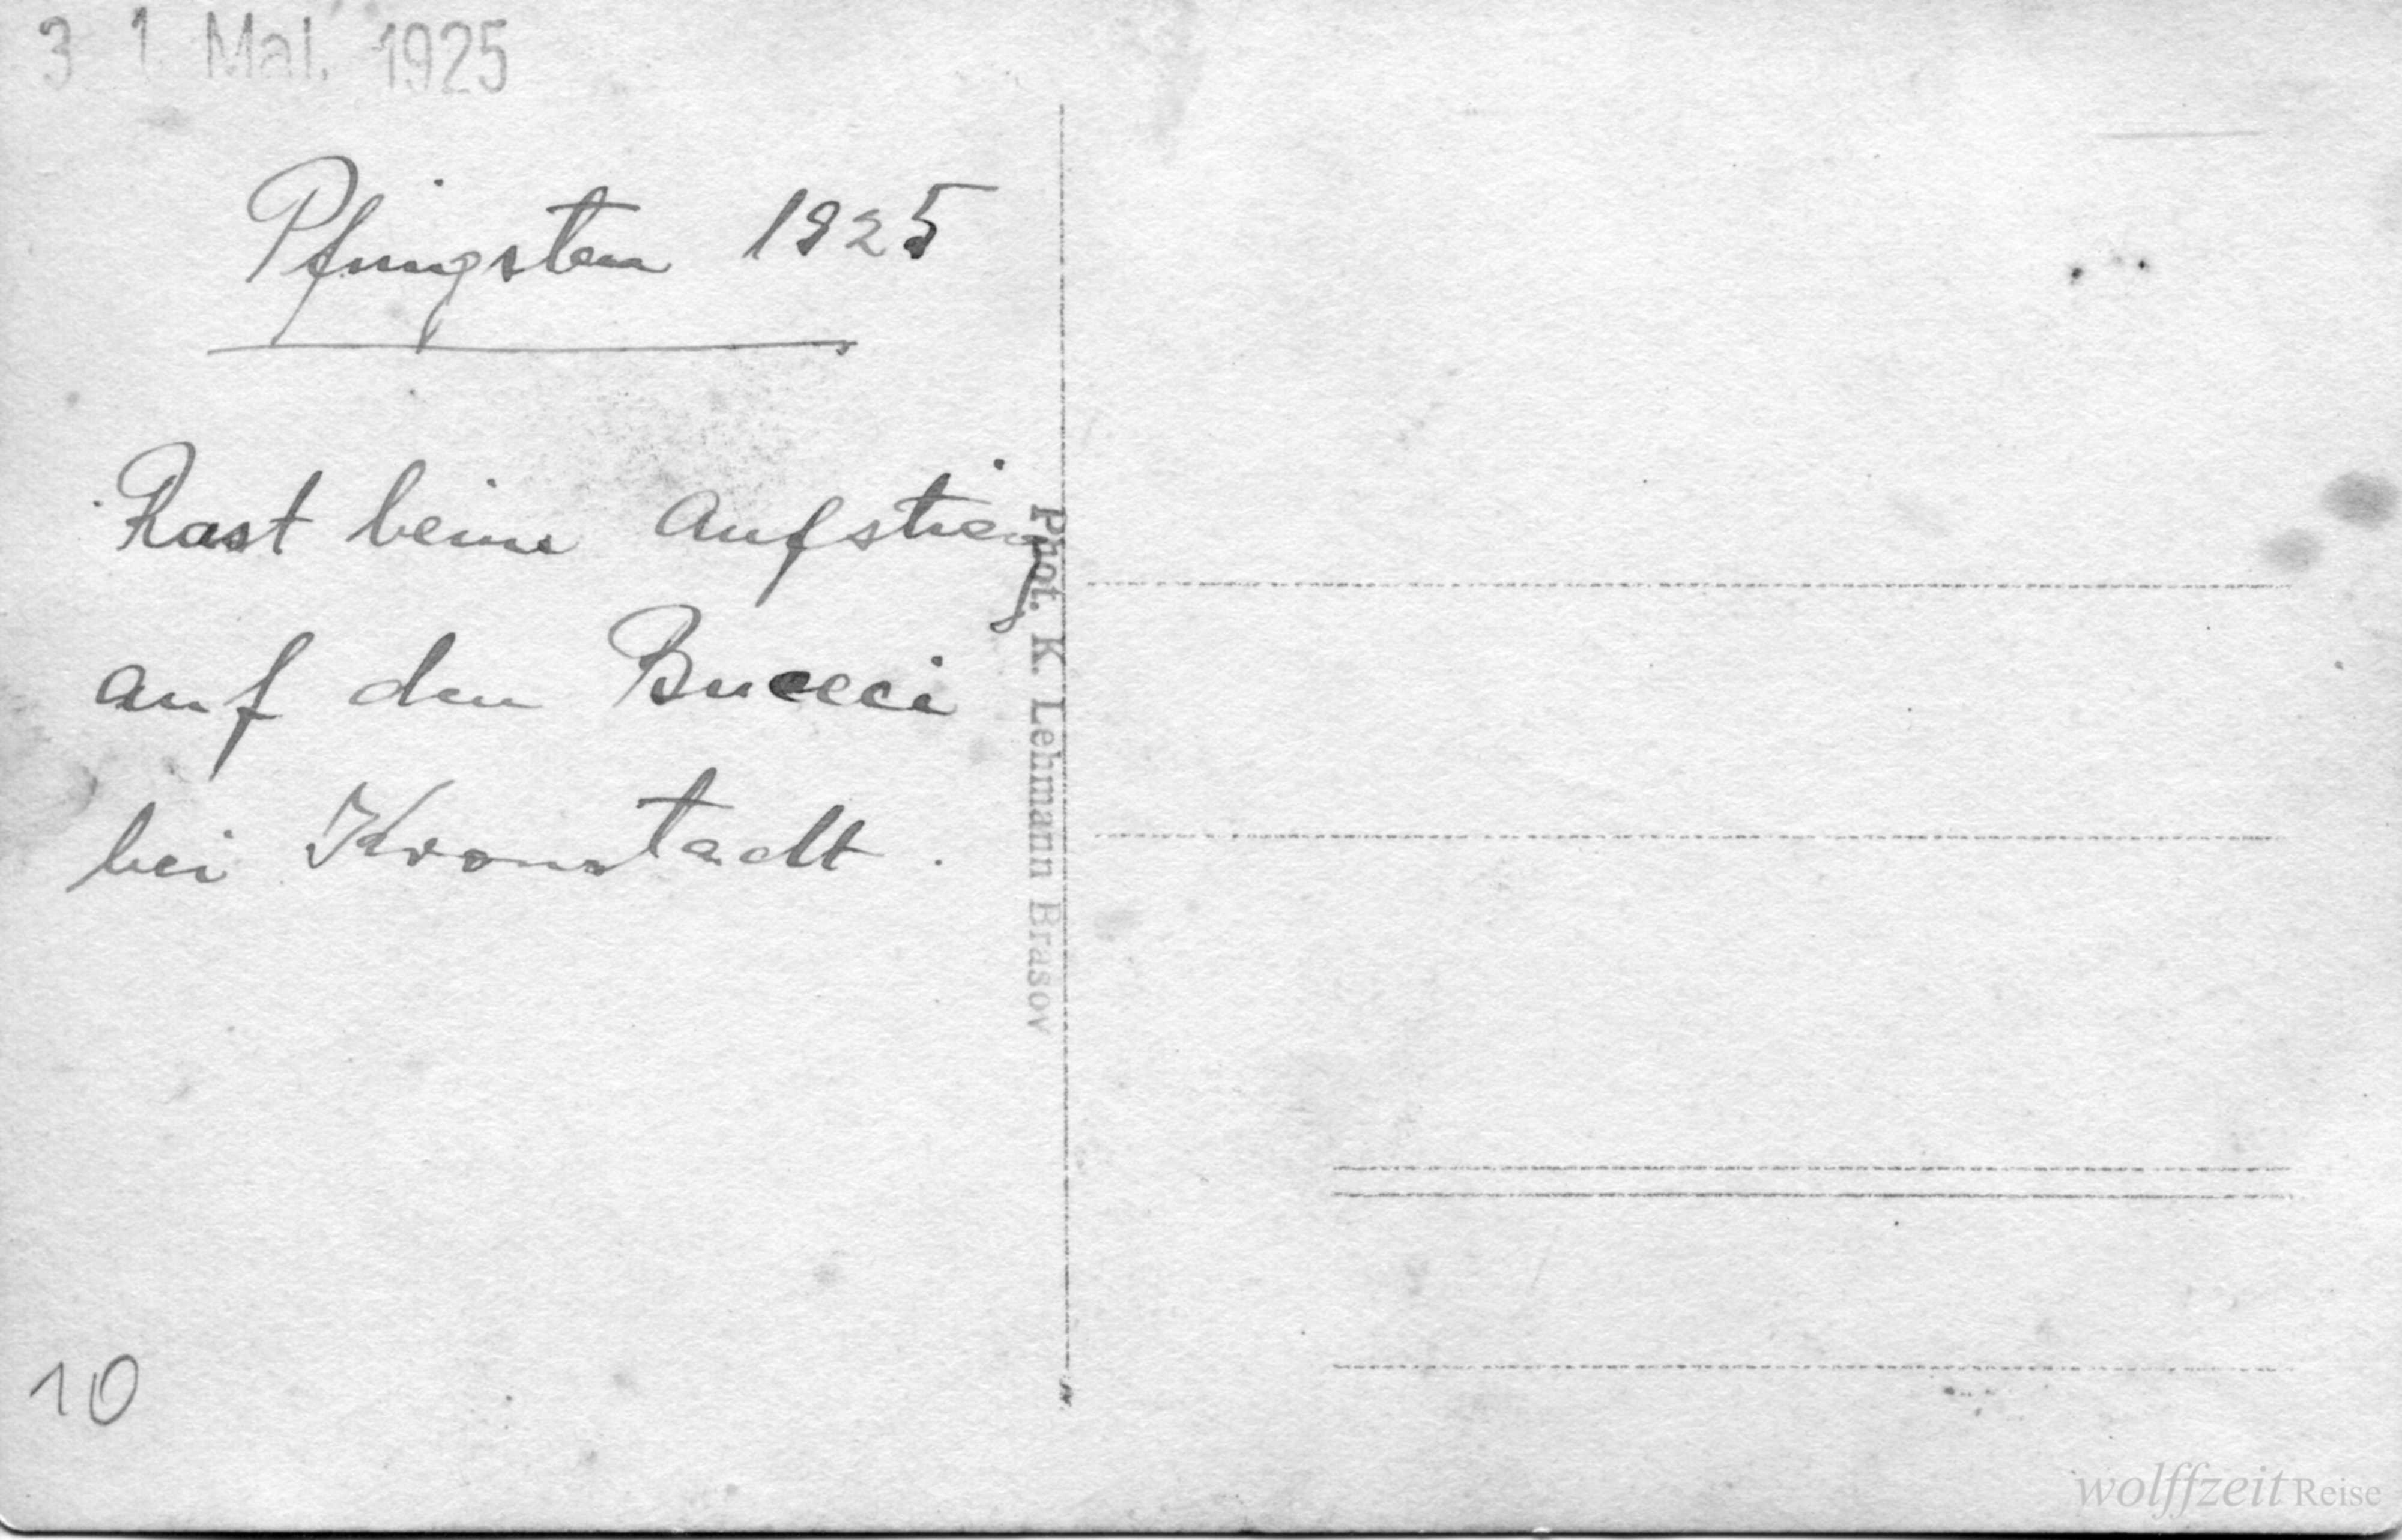 31. Mai. 1925
Pfingsten 1925
Rast beim Aufstieg
auf den Buceci
bei Kronstadt.
Phot. K. Lehmann Brasov
10
wolffzeit Reise